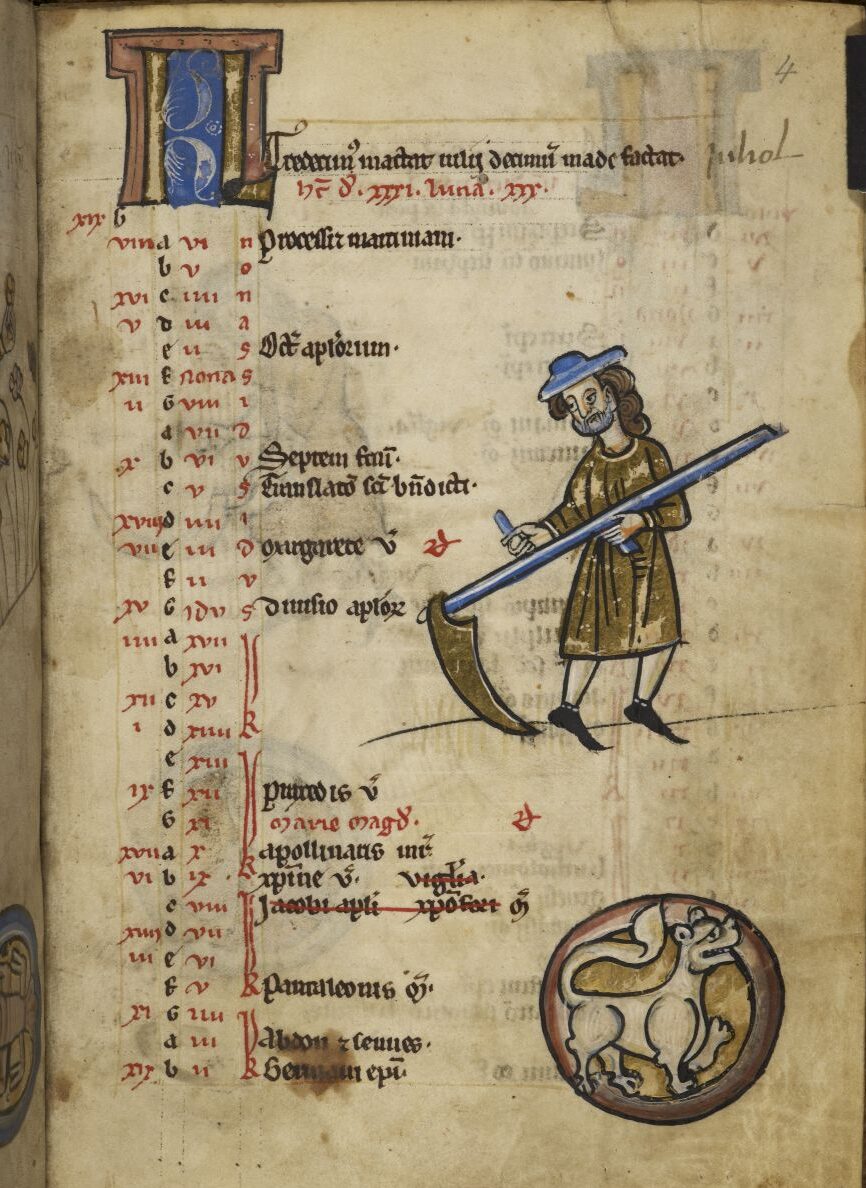 4
Tredecimꝰ mactat iulij decimū made factat. Juliol
hꝫ d̄. xxxi. luna. xxx.
xix b
viii a vi n Processi ⁊ martiniani.
b v o
xvi c iiii n
v d iii a
e ii s Oct̄ aplorum.
xiii f nonas
ii G viii i
a vii d
x b vi v Septem frm̄.
c v s Translatō sc̄i bn̄dicti.
xviii d iiii i
vii e iii d v̄
f ii v
xv G idvs diuisio aplorꝝ
iiii a xvii
b xvi
xii c xv
i d xiiii R
e xiii
ix f xii Praxedis v̄
G xi Marie magd̄.
xvii a x apollinaris m̄r̄
vi b ix R xpīne v̄. vigl̄ia.
c viii Jacobi apl̄i xpōfori m̄
xiiii d vii
iii e vi
f v R Pantaleonis m̄.
xi G iiii
a iii Abdon ⁊ sennes.
xix b ii R Germani epī.